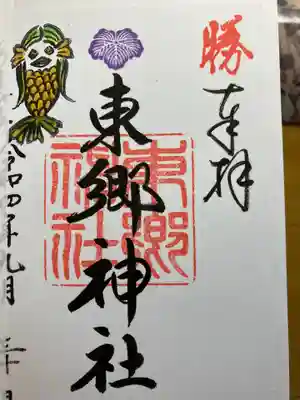 勝
奉拝
東郷神社
東郷
神社
令和四年九月三十日